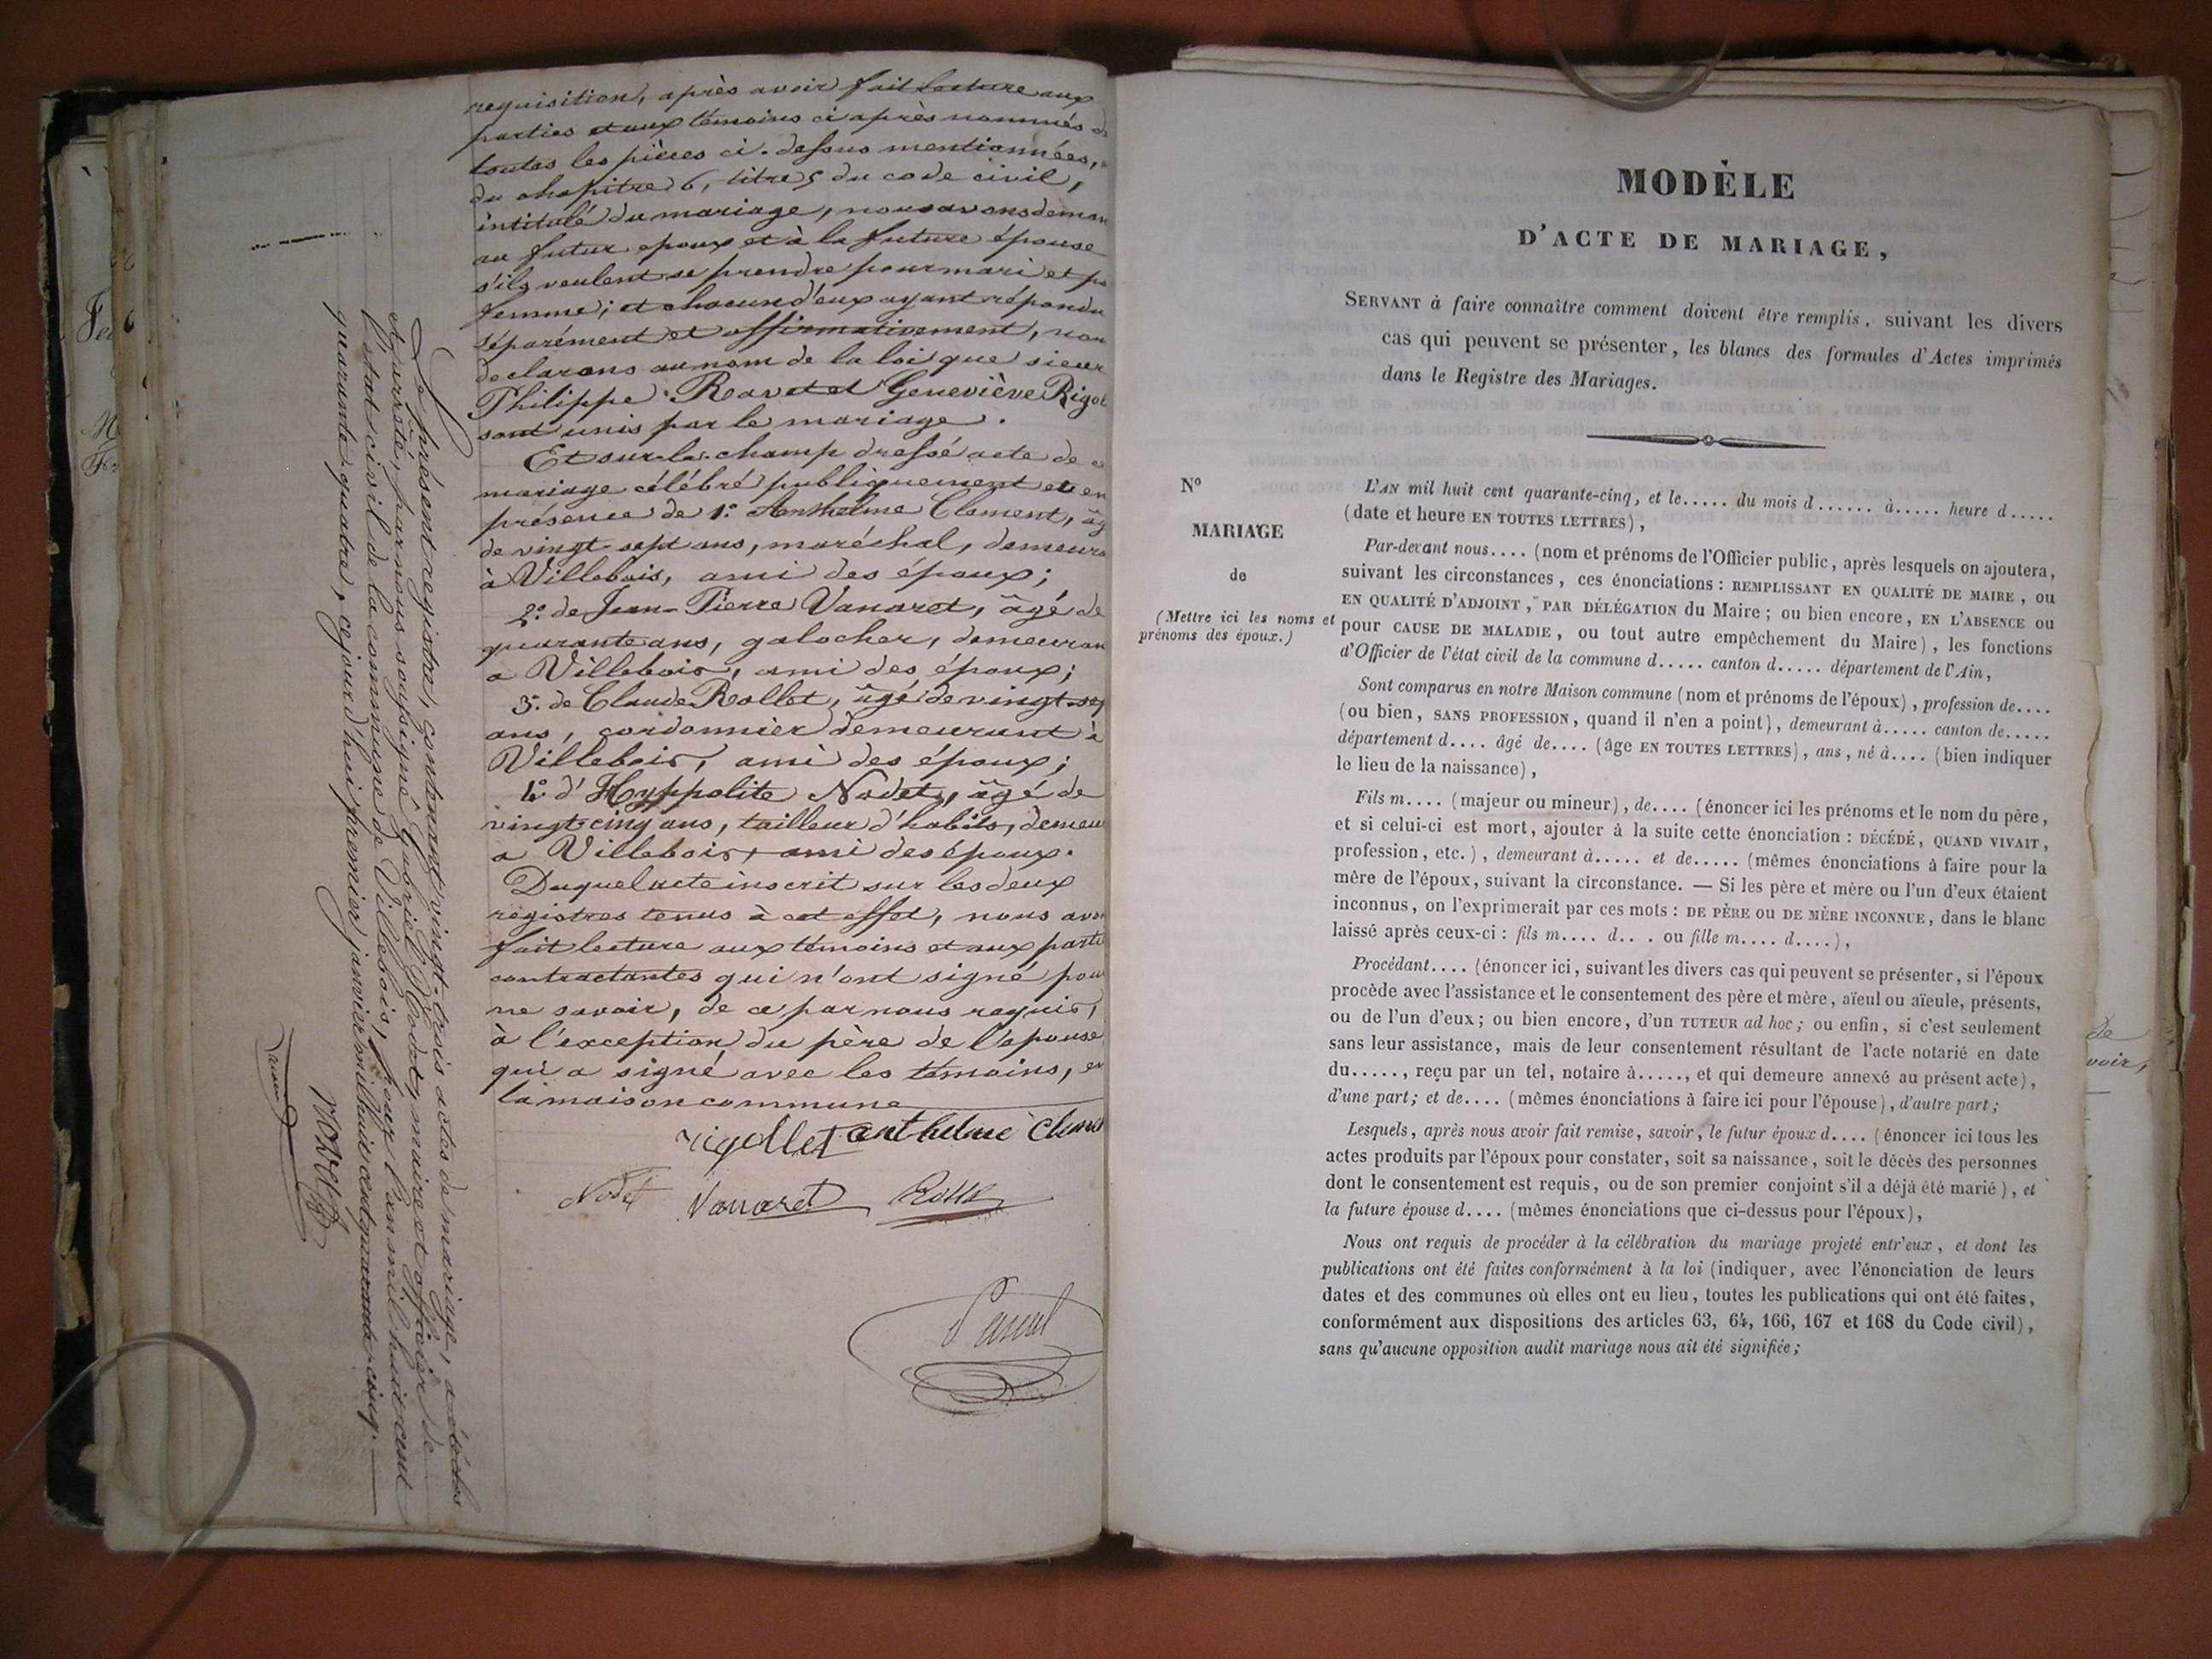 requisition, après avoir fait lecture aux
parties et aux témoins ci après nommés d
toutes les pièces ci-dessus mentionnées,
du chapitre 6, titre 5 du code civil,
intitulé du mariage, nous avons deman
au futur epoux et à la future épouse
s'ils veulent se prendre pour mari et po
femme; et chacun d'eux ayant répondu
séparément et affirmativement, nou
declarons au nom de la loi que sieur
Philippe Ravet et Geneviève Rigol
sont unis par le mariage.
Et sur-le-champ dressé acte de c
mariage célébré publiquement et en
présence de 1.° Anthelme Clement, âg
de vingt-sept ans, maréchal, demeura
à Villebois, ami des époux;
2.° de Jean-Pierre Vanaret, âgé de
quarante ans, galocher, demeuran
a Villebois, ami des époux;
3.° de Claude Rollet, âgé de vingt-sep
ans, cordonnier demeurant à
Villebois, ami des époux;
4.° d'Hyppolite Nodet, âgé de
vingt-cinq ans, tailleur d'habits, demeu
a Villebois, ami des époux.
Duquel acte inscrit sur les deux
registres tenus à cet effet, nous avon
fait lecture aux témoins et aux parti
contractantes qui n'ont signé pour
ne savoir, de ce par nous requis,
à l'exception du père de l'epouse
qui a signé avec les témoins, en
la maison commune
rigollet anthelme Cleme
Nodet Vanaret
Le présent registre, contenant vingt-trois actes de mariage, a été clos
et arrêté, par nous soussigné Gabriel Nodet, maire et officier de
l'état civil de la commune de Villebois, pour l'an mil huit cent
quarante-quatre, ce jourd'hui premier janvier mil huit cent quarante-cinq.
Nodet
MODÈLE
D'ACTE DE MARIAGE,
SERVANT à faire connaître comment doivent être remplis, suivant les divers
cas qui peuvent se présenter, les blancs des formules d'Actes imprimés
dans le Registre des Mariages.
N°
MARIAGE
de
(Mettre ici les noms et
prénoms des époux.)
L'AN mil huit cent quarante-cinq, et le..... du mois d...... à..... heure d.....
(date et heure EN TOUTES LETTRES),
Par-devant nous.... (nom et prénoms de l'Officier public, après lesquels on ajoutera,
suivant les circonstances, ces énonciations : REMPLISSANT EN QUALITÉ DE MAIRE, OU
EN QUALITÉ D'ADJOINT, PAR DÉLÉGATION du Maire; ou bien encore, EN L'ABSENCE OU
pour CAUSE DE MALADIE, ou tout autre empêchement du Maire), les fonctions
d'Officier de l'état civil de la commune d..... canton d..... département de l'Ain,
Sont comparus en notre Maison commune (nom et prénoms de l'époux), profession de....
(ou bien, SANS PROFESSION, quand il n'en a point), demeurant à..... canton de.....
département d.... âgé de.... (âge EN TOUTES LETTRES), ans, né à.... (bien indiquer
le lieu de la naissance),
Fils m.... (majeur ou mineur), de.... (énoncer ici les prénoms et le nom du père,
et si celui-ci est mort, ajouter à la suite cette énonciation : DÉCÉDÉ, QUAND VIVAIT,
profession, etc.), demeurant à..... et de..... (mêmes énonciations à faire pour la
mère de l'époux, suivant la circonstance. — Si les père et mère ou l'un d'eux étaient
inconnus, on l'exprimerait par ces mots : DE PÈRE OU DE MÈRE INCONNUE, dans le blanc
laissé après ceux-ci : fils m.... d.. . ou fille m.... d....),
Procédant.... (énoncer ici, suivant les divers cas qui peuvent se présenter, si l'époux
procède avec l'assistance et le consentement des père et mère, aïeul ou aïeule, présents,
ou de l'un d'eux; ou bien encore, d'un TUTEUR ad hoc; ou enfin, si c'est seulement
sans leur assistance, mais de leur consentement résultant de l'acte notarié en date
du....., reçu par un tel, notaire à....., et qui demeure annexé au présent acte),
d'une part; et de.... (mêmes énonciations à faire ici pour l'épouse), d'autre part;
Lesquels, après nous avoir fait remise, savoir, le futur époux d.... (énoncer ici tous les
actes produits par l'époux pour constater, soit sa naissance, soit le décès des personnes
dont le consentement est requis, ou de son premier conjoint s'il a déjà été marié), et
la future épouse d.... (mêmes énonciations que ci-dessus pour l'époux),
Nous ont requis de procéder à la célébration du mariage projeté entr'eux, et dont les
publications ont été faites conformément à la loi (indiquer, avec l'énonciation de leurs
dates et des communes où elles ont eu lieu, toutes les publications qui ont été faites,
conformément aux dispositions des articles 63, 64, 166, 167 et 168 du Code civil),
sans qu'aucune opposition audit mariage nous ait été signifiée;
de
voir,